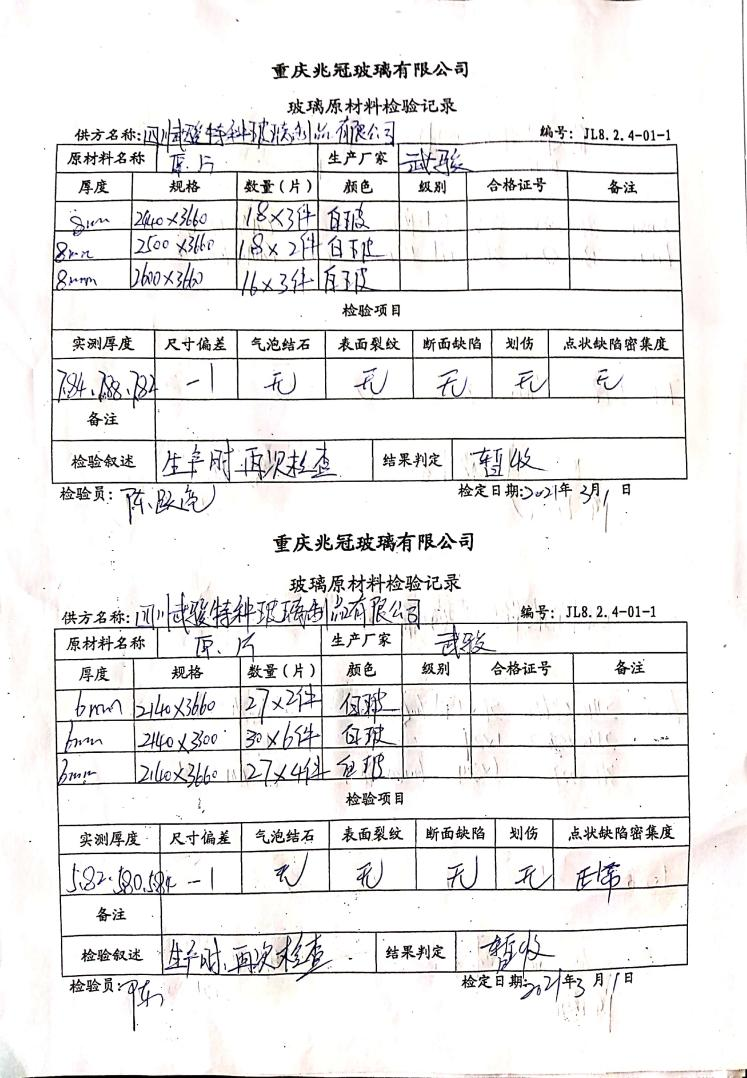 重庆兆冠玻璃有限公司
玻璃原材料检验记录
供方名称:四川武骏特种玻璃制品有限公司 编号: JL8.2.4-01-1
原材料名称 原片 生产厂家 武骏
厚度 规格 数量(片) 颜色 级别 合格证号 备注
8mm 2440×3660 18×3件 白玻
8mm 2500×3660 18×2件 白玻
8mm 2600×3660 16×3件 白玻
检验项目
实测厚度 尺寸偏差 气泡结石 表面裂纹 断面缺陷 划伤 点状缺陷密集度
7.84、7.88、7.82 -1 无 无 无 无 无
备注
检验叙述 生产时再次检查 结果判定 暂收
检验员: 陈 检定日期:2021年3月1日
重庆兆冠玻璃有限公司
玻璃原材料检验记录
供方名称:四川武骏特种玻璃制品有限公司 编号: JL8.2.4-01-1
原材料名称 原片 生产厂家 武骏
厚度 规格 数量(片) 颜色 级别 合格证号 备注
6mm 2140×3660 27×2件 白玻
6mm 2440×3300 30×6件 白玻
2140×3660 27×4件 白玻
检验项目
实测厚度 尺寸偏差 气泡结石 表面裂纹 断面缺陷 划伤 点状缺陷密集度
5.82、5.80、5.84 -1 无 无 无 无 正常
备注
检验叙述 生产时、再次检查 结果判定 暂收
检验员: 陈 检定日期:2021年3月1日